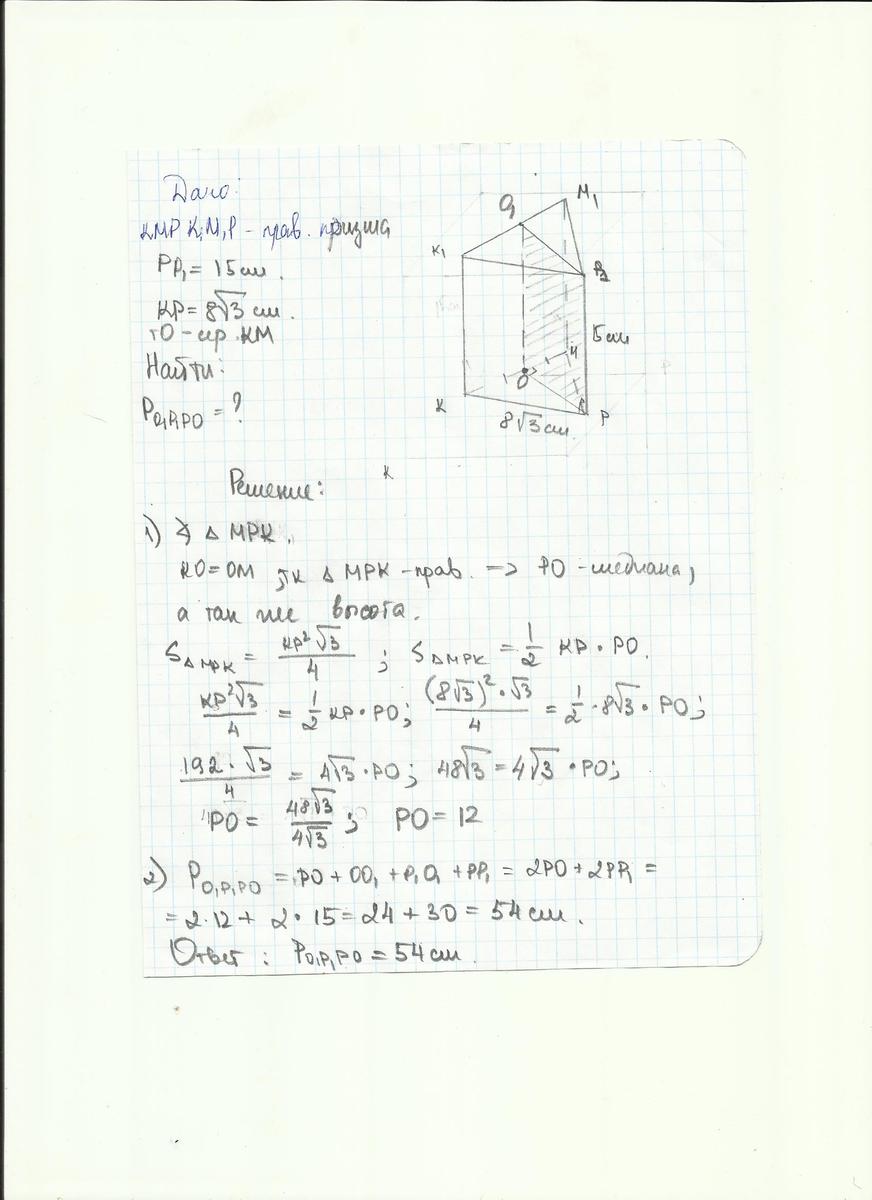 Дано:
KMP K₁M₁P - прав. призма
PP₁ = 15 см.
KP = 8√3 см.
тО - сер. KM
Найти:
P₀₁P₁PO = ?
O₁
M₁
K₁
P₁
15 см
M
O
K
P
8√3 см.
K
Решение:
1) ∢ Δ MPK.
KO = OM, тк Δ MPK - прав. => PO - медиана,
а так же высота.
S Δ MPK = KP²√3/4 ; S Δ MPK = 1/2 KP · PO.
KP²√3/4 = 1/2 KP · PO; (8√3)² · √3/4 = 1/2 · 8√3 · PO;
192 · √3/4 = 4√3 · PO; 48√3 = 4√3 · PO;
PO = 48√3/4√3 ; PO = 12
2) P O₁P₁PO = PO + OO₁ + P₁O₁ + PP₁ = 2PO + 2PP₁ =
= 2·12 + 2·15 = 24 + 30 = 54 см.
Ответ: P O₁P₁PO = 54 см.